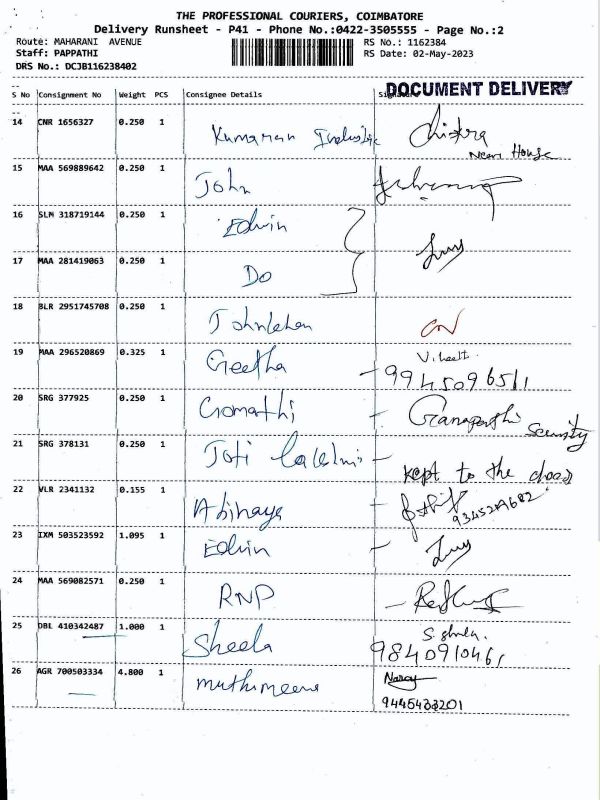 THE PROFESSIONAL COURIERS, COIMBATORE
Delivery Runsheet - P41 - Phone No.:0422-3505555 - Page No.:2
Route: MAHARANI AVENUE RS No.: 1162384
Staff: PAPPATHI RS Date: 02-May-2023
DRS No.: DCJB116238402
DOCUMENT DELIVERY
S No Consignment No Weight PCS Consignee Details Signature
14 CNR 1656327 0.250 1 Kumaran Chitra
Near House
15 MAA 569889642 0.250 1 John
16 SLM 318719144 0.250 1 Edwin
17 MAA 281419063 0.250 1 Do
18 BLR 2951745708 0.250 1
19 MAA 296520869 0.325 1 Geetha
9945096511
20 SRG 377925 0.250 1 Gomathi - Security
21 SRG 378131 0.250 1 Joti -
kept to the door
22 VLR 2341132 0.155 1 Abinaya -
23 IXM 503523592 1.095 1 Edwin -
24 MAA 569082571 0.250 1 RNP -
25 DBL 410342487 1.000 1 Sheela
26 AGR 700503334 4.800 1 muthumeena
9445433201